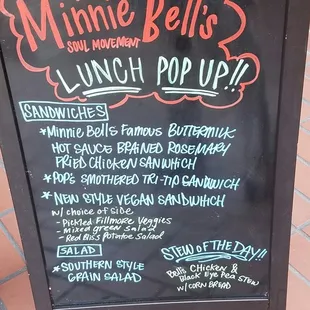 Minnie Bell's
SOUL MOVEMENT
LUNCH POP UP!!
SANDWICHES
*Minnie Bells Famous Buttermilk
Hot Sauce Brained Rosemary
Fried Chicken Sanwhich
*Pop's Smothered Tri-Tip Sandwich
*New Style Vegan Sandwhich
w/ choice of side
- Pickled Fillmore Veggies
- Mixed green Salad
- Red Biss Potatoe Salad
SALAD
*Southern Style
Grain Salad
STEW OF THE DAY!!
Bell's Chicken &
Black Eye Pea Stew
w/ Corn Bread